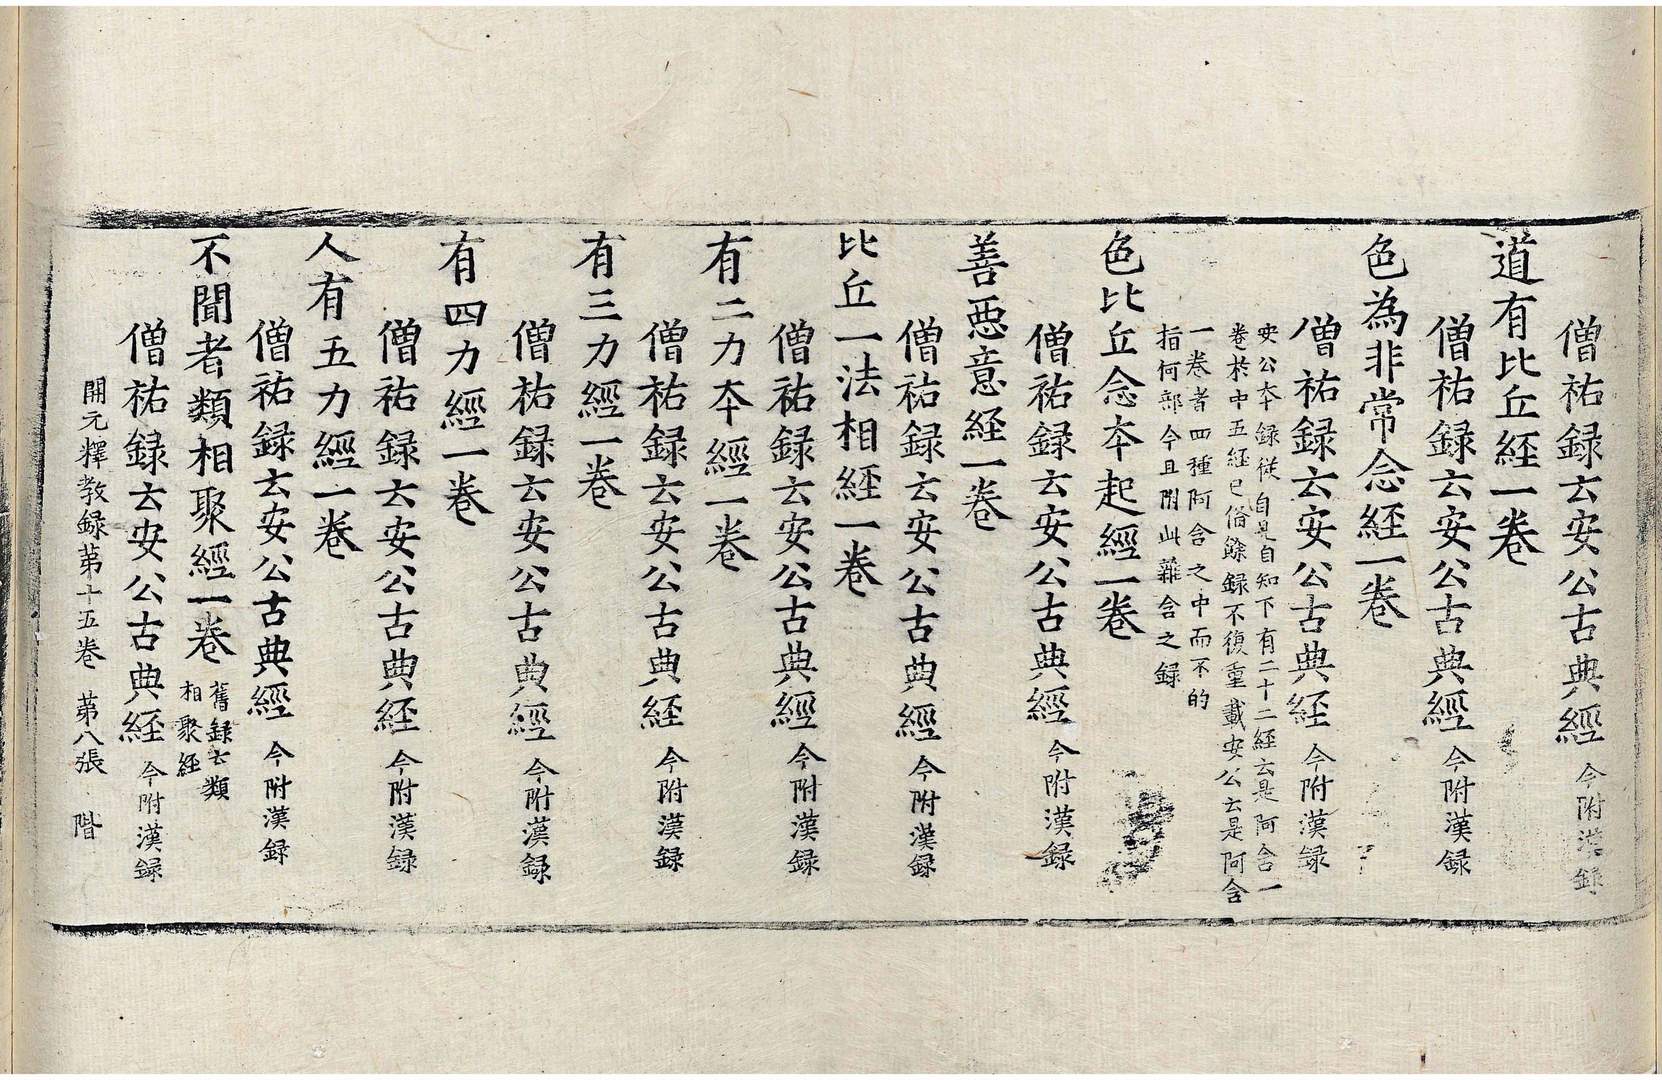 僧祐録云安公古典經 今附漢録
道有比丘経一卷
僧祐録云安公古典経 今附漢録
色為非常念経一卷
僧祐録云安公古典経 今附漢録
安公本録従自見自知下有二十二経云是阿含一
卷於中五経已備餘録不復重載安公云是阿含
一卷者四種阿含之中而不的
指何部今且附此雜含之録
色比丘念夲起經一卷
僧祐録云安公古典経 今附漢録
善惡意経一卷
僧祐録云安公古典経 今附漢録
比丘一法相経一卷
僧祐録云安公古典経 今附漢録
有二力夲經一卷
僧祐録云安公古典経 今附漢録
有三力經一卷
僧祐録云安公古典經 今附漢録
有四力經一卷
僧祐録云安公古典経 今附漢録
人有五力經一卷
僧祐録云安公古典経 今附漢録
不聞者類相聚經一卷 舊録云類
相聚経
僧祐録云安公古典経 今附漢録
開元釋教録苐十五卷 苐八張 階